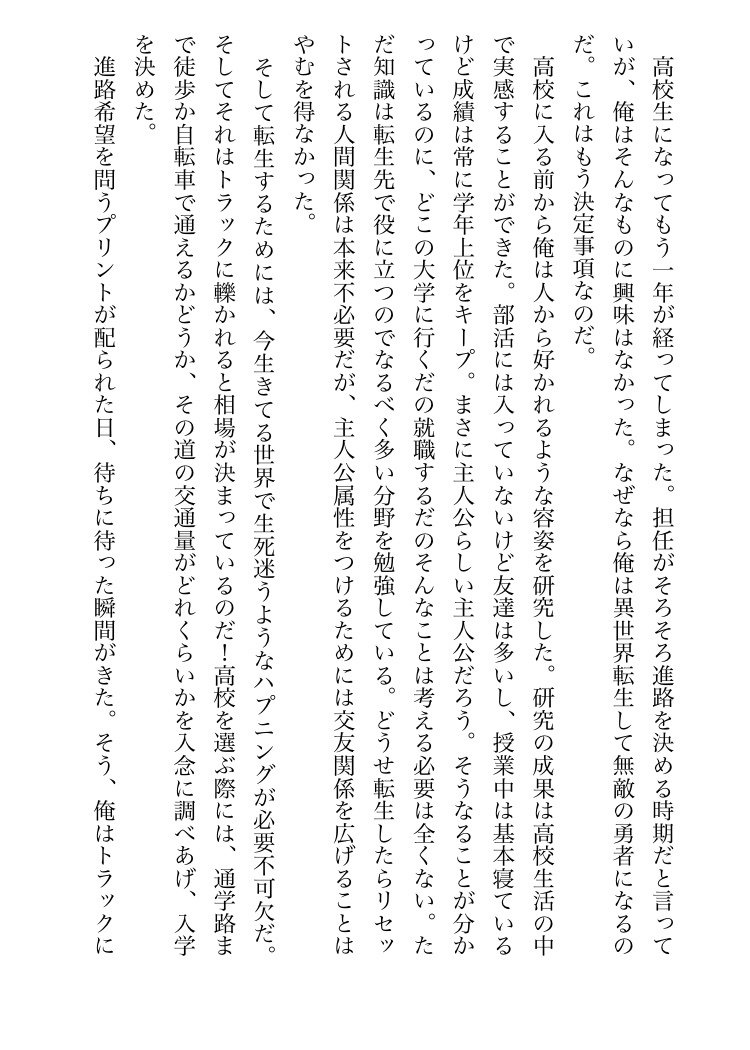 高校生になってもう一年が経ってしまった。担任がそろそろ進路を決める時期だと言って
いが、俺はそんなものに興味はなかった。なぜなら俺は異世界転生して無敵の勇者になるの
だ。これはもう決定事項なのだ。
高校に入る前から俺は人から好かれるような容姿を研究した。研究の成果は高校生活の中
で実感することができた。部活には入っていないけど友達は多いし、授業中は基本寝ている
けど成績は常に学年上位をキープ。まさに主人公らしい主人公だろう。そうなることが分か
っているのに、どこの大学に行くだの就職するだのそんなことは考える必要は全くない。た
だ知識は転生先で役に立つのでなるべく多い分野を勉強している。どうせ転生したらリセッ
トされる人間関係は本来不必要だが、主人公属性をつけるためには交友関係を広げることは
やむを得なかった。
そして転生するためには、今生きてる世界で生死迷うようなハプニングが必要不可欠だ。
そしてそれはトラックに轢かれると相場が決まっているのだ！高校を選ぶ際には、通学路ま
で徒歩か自転車で通えるかどうか、その道の交通量がどれくらいかを入念に調べあげ、入学
を決めた。
進路希望を問うプリントが配られた日、待ちに待った瞬間がきた。そう、俺はトラックに